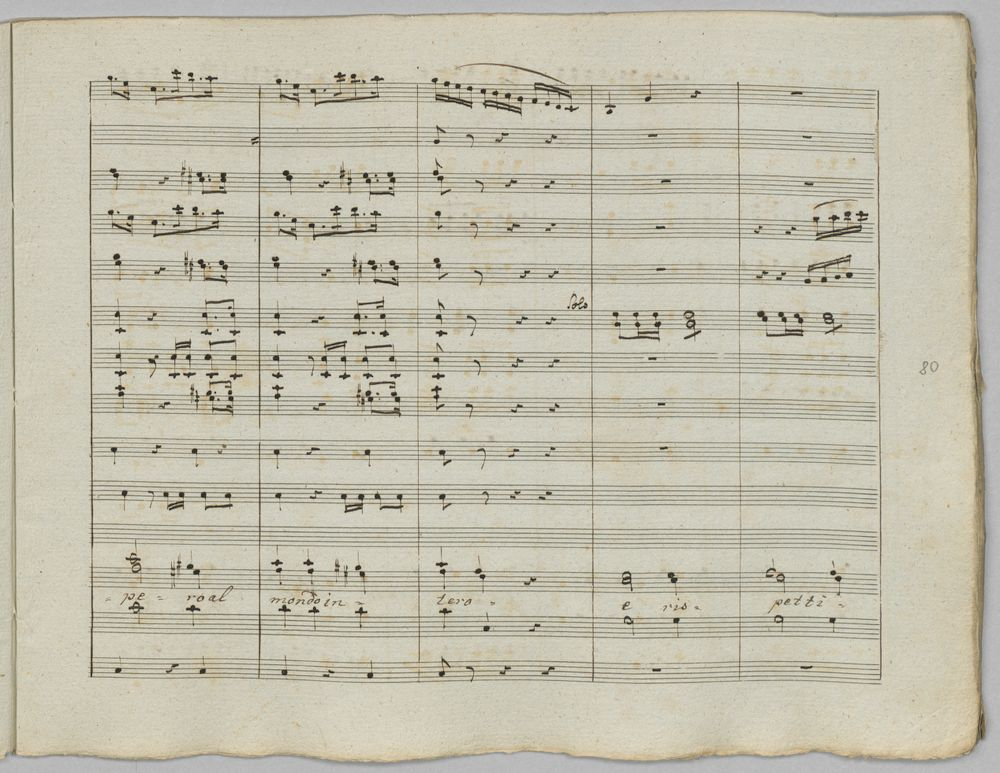 Solo
80
- pe - roal mondoin - tero - e ris - petti -